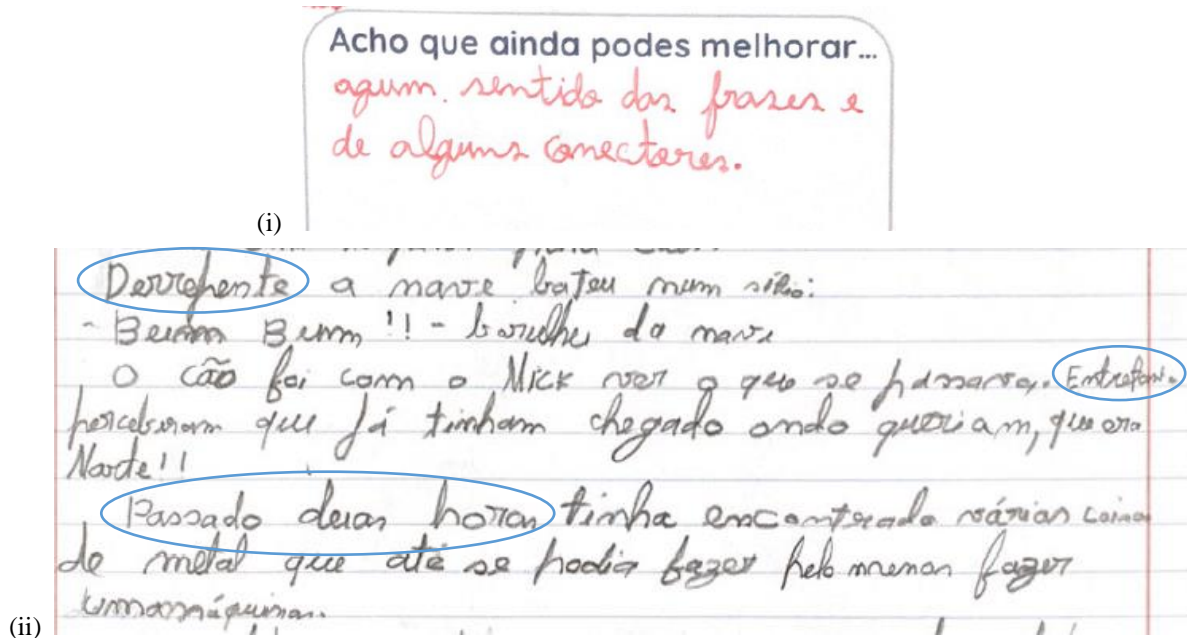 Acho que ainda podes melhorar...
agum. sentido das frases e
de alguns conectores.
(i)
Derrepente a nave bateu num sítio:
- Bumm Bumm !! - barulho da nave
O cão foi com o Mick ver o que se passava.
perceberam que já tinham chegado ondo queriam, que era
Marte!!
Passado duas horas tinha encontrado várias coisas
de metal que até se podia fazer pelo menos fazer
uma máquina.
(ii)